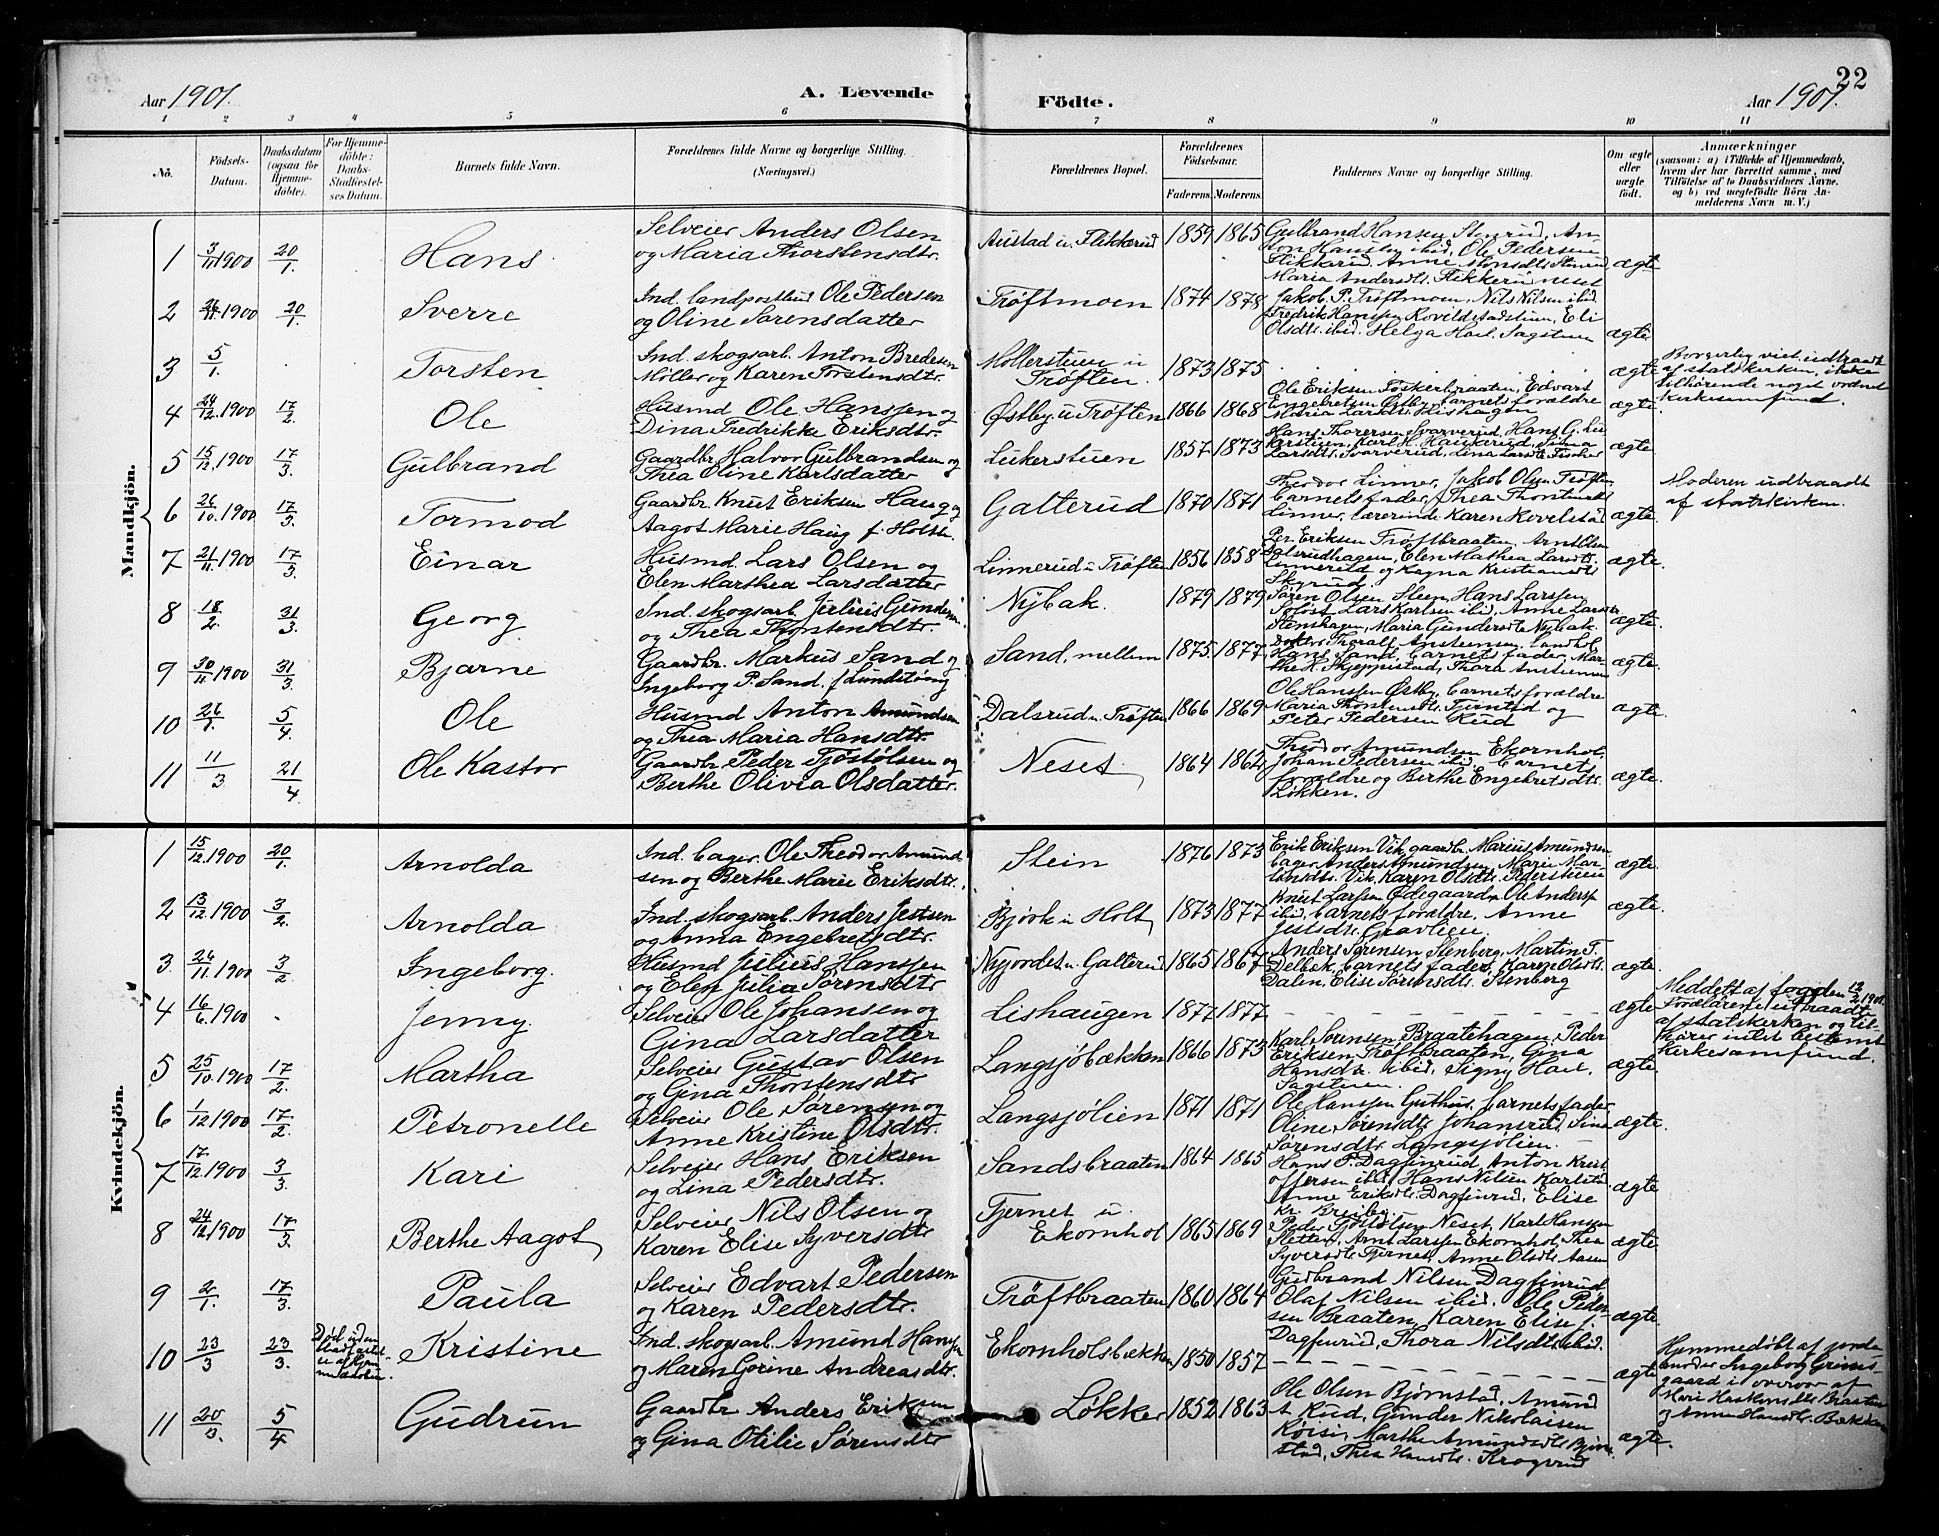 Aar 1901. A. Levende Födte. Aar 1901. 22
1 2 3 4 5 6 7 8 9 10 11
No. Födsels-Datum. Daabsdatum (ogsaa for Hjemme-döbte). For Hjemme-döbte: Daabs-Stadfæstel-ses Datum. Barnets fulde Navn. Forældrenes fulde Navne og borgerlige Stilling. (Næringsvei.) Forældrenes Bopæl. Forældrenes Födselsaar. Faderens. Moderens. Faddernes Navne og borgerlige Stilling. Om ægte eller uægte födt. Anmærkninger
(saasom: a) i Tilfælde af Hjemmedaab,
hvem der har forrettet samme, med
Tilföielse af to Daabsvidners Navne.
og b) ved uegtefödte Börn An-
melderens Navn m. V.)
Mandkjön.
1 3/11 1900 20/1. Hans Selveier Anders Olsen
og Maria Thorstensdtr. Austad u. Flikkerud 1859 1865 Gulbrand Hansen Stenrud, An-
ton Hansen ibid, Ole Pedersen
Flikkerud, Anne
Maria Andersdtr. Flikkerud neset ægte
2 26/11. 1900 20/1. Sverre Ind. landpostbud Ole Pedersen
og Oline Sørensdatter Trøftmoen 1874 1878 Jakob P. Trøftmoen, Nils Nilsen ibid
Fredrik Hanssen Eli
Olsdtr. ibid. Helga Hoel. Sagstuen ægte
3 5/1. Torsten Ind. skogsarb. Anton Bredesen
Møller og Karen Torstensdtr. Mollerstuen u
Trøften. 1873 1875 ægte Borgerlig viet. udtraadt
af statskirken, ikke
tilhørende noget ordnet
kirkesamfund.
4 24/12. 1900 17/2. Ole Husmd Ole Hanssen og
Dina Fredrikke Eriksdtr. Østby u Trøften 1866 1868 Ole Eriksen Edvart
Engebretsen Østby, barnets forældre
Maria ægte
5 15/12. 1900 17/3. Gulbrand Gaardbr Halvor Gulbrandsen og
Thea Oline Karlsdatter Lukerstuen 1857 1873 Hans Thoresen Svarverud, Hans G. Lu
kerstuen, Karl H. Haukerud,
Larsdtr. Svarverud, Lina Larsdtr. ægte
6 26/10. 1900 17/3. Tormod Gaardbr Knut Eriksen Haug og
Aagot Marie Haug f. Holst. Galterud 1870 1871 Theodor Linner, Jakob Olsen Trøften
barnets fader, Thea
Linner, lærerinde Karen Kovelstad ægte. Moderen udtraadt
af statskirken.
7 21/11. 1900 17/3. Einar Husmd. Lars Olsen og
Elen Marthea Larsdatter Linnerud u Trøften 1856 1858 Per Eriksen Trøftbraaten, Arnt Olsen
Dalsrudhagen, Elen Mathea Larsdtr.
Linnerud og Ragna Kristiansdtr
Skyrud ægte.
8 18/2. 31/3. Georg Ind. skogsarb. Julius Gundersen
og Thea Thorstensdtr. Nybak. 1879 1879 Søren Olsen Steen, Hans Larssen
Lars Karlsen ibid, Anne Larsdtr
Stenshagen, Maria Gundersdtr Nybak. ægte.
9 30/11. 1900 31/3. Bjarne Gaardbr. Markus Sand og
Ingeborg P. Sand. f. Lundstøing Sand. mellem 1875 1877 Thoralf
Hans Sand, barnets fader, Mar-
the H. Skjeppestad, Thora Anstensen ægte.
10 26/1. 5/4. Ole Husmd Anton Amundsen
og Thea Maria Hansdtr. Dalsrud u Trøften 1866 1869 Ole Hanssen Østby, barnets forældre
Maria Thorstensdtr. og
Peter Pedersen Rud ægte.
11 11/3 21/4 Ole Kastor Gaardbr Peder Tjøstølsen og
Berthe Olivia Olsdatter. Neset 1864 1862 Theodor Amundsen Ekornhol,
Johan Pedersen ibid. barnets
forældre og Berthe Engebretsdtr.
Løkken. ægte.
Kvindekjön.
1 15/12. 1900 20/1. Arnolda Ind. bager. Ole Theodor Amund-
sen og Berthe Marie Eriksdtr. Stein 1876 1873 Erik Eriksen Vik gaardbr. Marius Amundsen
bager Anders Amundsen, Marie Mar-
Vik, Karen Olsdtr. Pederstuen ægte.
2 13/12. 1900 3/2. Arnolda Ind. skogsarb. Anders Jestsen
og Anna Engebretsdtr. Bjørk u Holt 1873 1877 Knut Larssen Ødegaarden Ole Anders
ibid, barnets forældre, Anne
Jestsdtr. Gravlien. ægte.
3 26/11. 1900 3/2 Ingeborg. Husmd Julius Hanssen
og Elen Julia Sørensdtr Nyjordet u. Galterud 1865 1867 Anders Sørensen Stenberg, Martin T.
Delbæk, barnets fader, Karen Olsdtr.
Dalen, Elise Sørensdtr. Stenberg ægte.
4 16/6. 1900 . Jenny. Selveier Ole Johansen og
Gina Larsdatter Lishaugen 1877 1877 ægte Meddelt af fogden 12/2 1901.
Forældrene udtraadte
af statskirken og til-
hører intet bestemt
kirkesamfund.
5 25/10. 1900 17/2. Martha Selveier Gustav Olsen
og Gina Thorstensdtr Langsjøbækken 1866 1873 Karl Sørensen Braatehagen, Peder
Eriksen Trøftbraaten, Gina
Hansdtr. ibid, Signy Hoel.
Sagstuen. ægte.
6 1/12 1900 17/2. Petronelle Selveier Ole Sørensen og
Anne Kristine Olsdtr. Langsjølien 1871 1871 Ole Hanssen Guthus, barnets fader
Oline Sørensdtr Johansrud, Sina
Sørensdtr. Langsjølien. ægte.
7 17/12 1900 3/3. Kari Selveier Hans Eriksen
og Lina Pedersdtr. Sandsbraaten 1864 1865 Hans P. Dagfinrud, Anton Krist
offersen ibid, Hans Nilsen
Anne Eriksdtr. Dagfinrud, Elise
Kr. Breiby. ægte
8 24/12 1900 17/3. Berthe Aagot Selveier Nils Olsen og
Karen Elise Syversdtr Tjernet u.
Ekornhol 1865 1869 Peder Tjøstølsen Neset, Karl Hansen
Sletten, Arnt Larssen Ekornhol, Thea
Syversdtr. Tjernet, Anne Olsdtr. Aasen ægte
9 2/1. 17/3. Paula Selveier Edvart Pedersen
og Karen Pedersdtr. Trøftbraaten 1860 1864 Gudbrand Nilsen Dagfinrud,
Olaf Nilsen ibid. Ole Peder-
sen Braaten, Karen Elise
Dagfinrud, Thora Nilsdtr. ibid. ægte
10 23/3 23/3. Død uden
stadfæstel-
se af hjem-
medaaben. Kristine Ind. skogsarb. Amund Hanssen
og Maren Gorine Andreasdtr. Ekornholsbækken 1850 1857 ægte Hjemmedøbt af jorde-
moder Ingeborg Grims-
gaard i overvær af
Marie Haakensdtr Braaten
og Anne Hansdtr. Bækken.
11 20/3. 5/4 Gudrun Gaardbr Anders Eriksen
og Gina Otilie Sørensdtr Løkken 1852 1863 Ole Olsen Bjørnstad, Amund
A Rud, Gunder Nikolaisen
Marthe Amundsdtr. Bjørn-
stad, Thea Hansdtr. Krogsrud ægte.